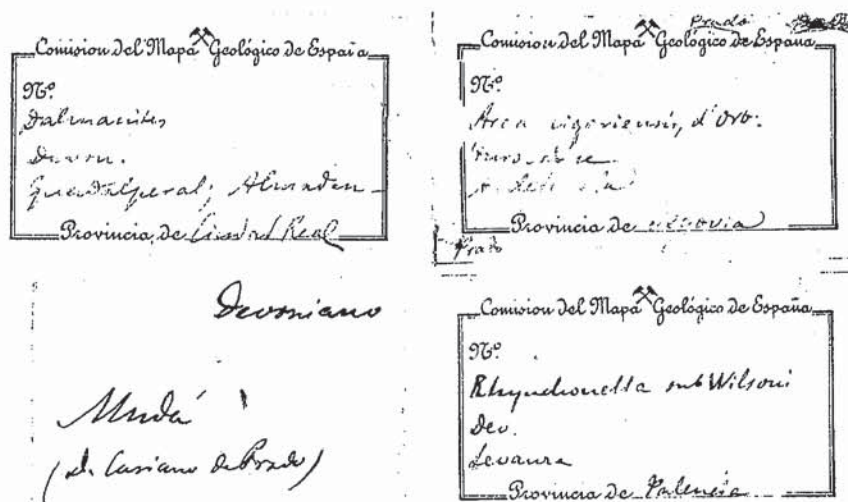 Comision del Mapa Geológico de España
Nº
Dalmanites
Devon.
Guadalperal; Almaden
Provincia de Ciudad Real
Prado
Comision del Mapa Geológico de España
Nº
Arca ligeriensis, d'Orb.
Provincia de Segovia
Prado
Devoniano
Mudá
(D. Casiano de Prado)
Comision del Mapa Geológico de España
Nº
Rhynchonella sub Wilsoni
Dev.
Levanza
Provincia de Palencia